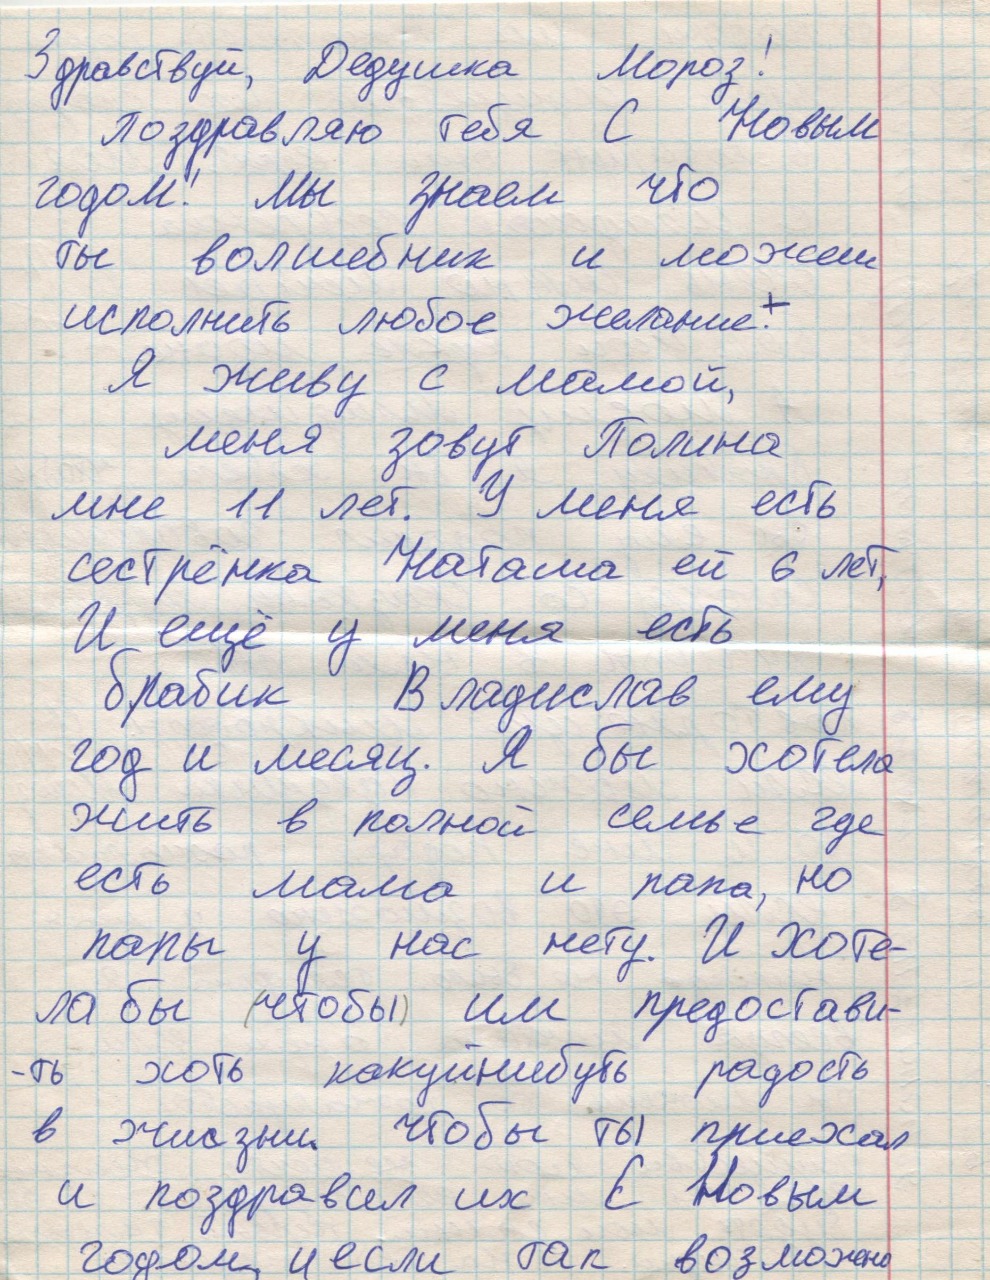 Здравствуй, Дедушка Мороз!
Поздравляю тебя С Новым
годом! Мы знаем что
ты волшебник и можеш
исполнить любое желание!
Я живу с мамой,
меня зовут Полина
мне 11 лет. У меня есть
сестрёнка Наташа ей 6 лет,
И ещё у меня есть
брабик Владислав ему
год и месяц. Я бы хотела
жить в полной семье где
есть мама и папа, но
папы у нас нету. И хоте-
ла бы (чтобы) им предостави-
-ть хоть какуйнибуть радость
в жизни. чтобы ты приехал
и поздравил их С Новым
годом, и если так возможно